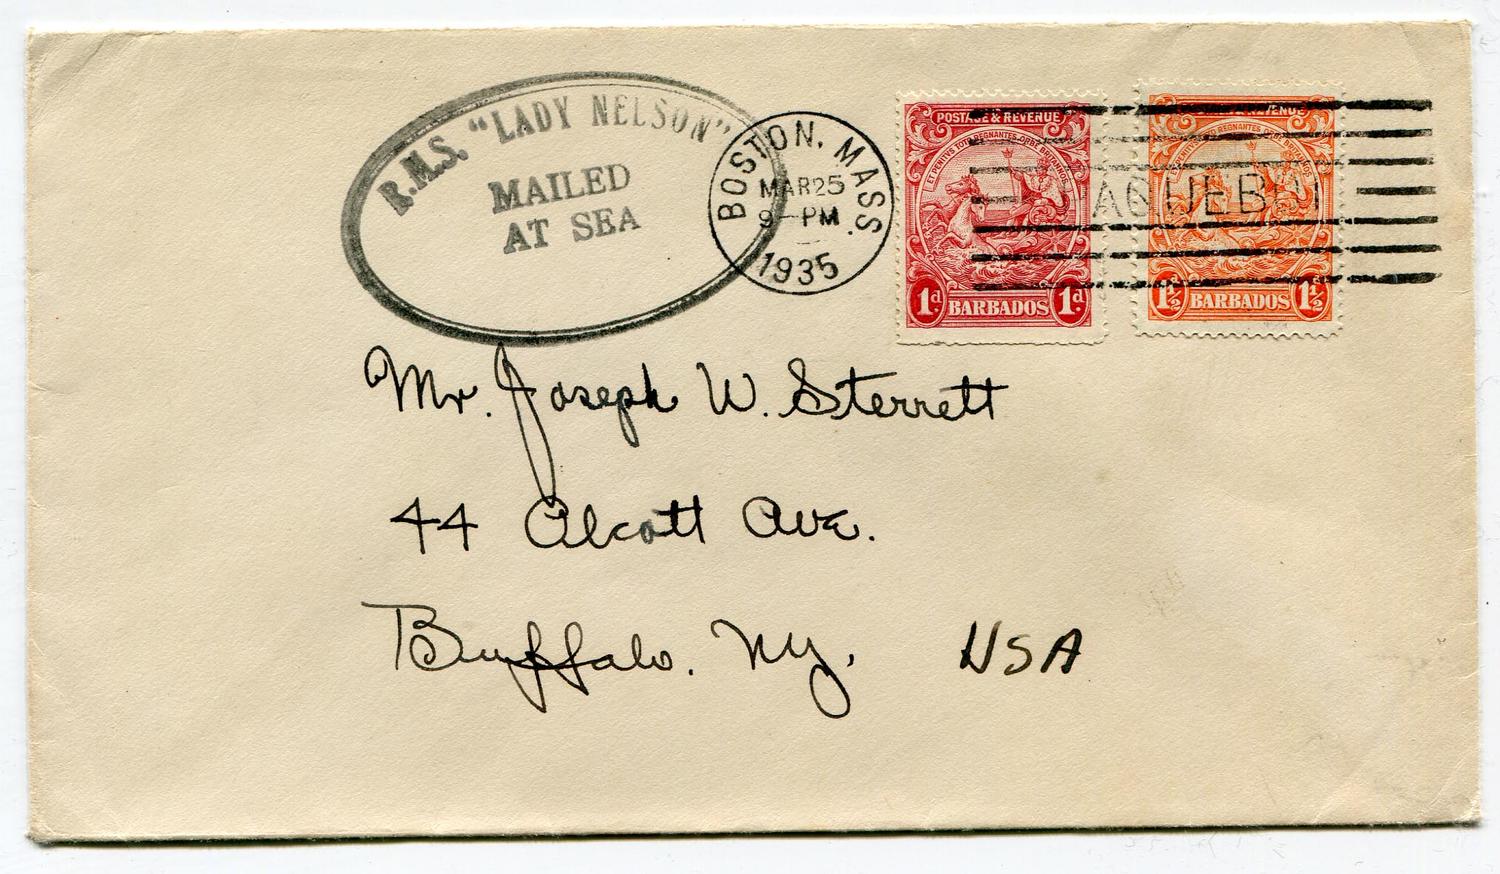 R.M.S. "LADY NELSON"
MAILED
AT SEA
BOSTON, MASS.
MAR 25
9 - PM
1935
POSTAGE & REVENUE
ET PENITUS TOTO REGNANTES ORBE BRITANNOS
1d BARBADOS 1d.
REGNANTES ORBE
1½d BARBADOS 1½d
Mr. Joseph W. Sterrett
44 Alcott Ave.
Buffalo. NY.
USA